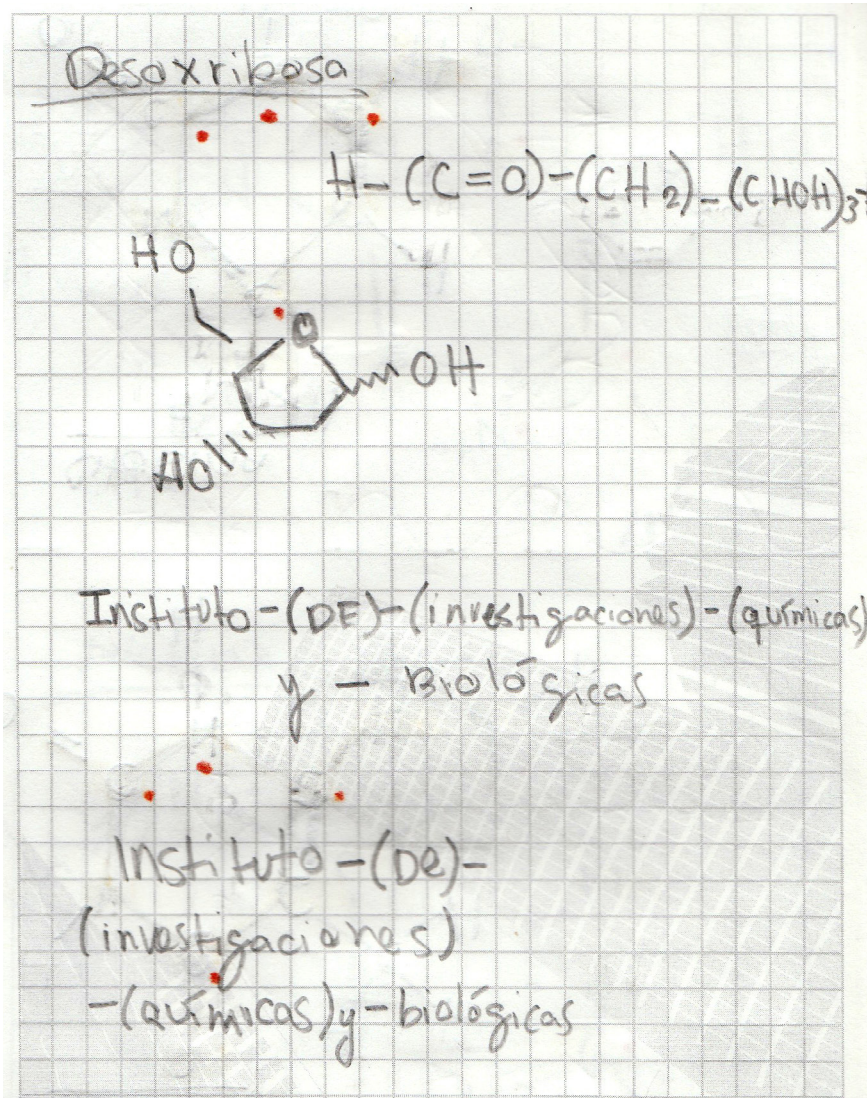 Desoxribosa
H-(C=O)-(CH2)-(CHOH)3-
HO
O
OH
HO
Instituto-(DE)-(investigaciones)-(químicas)
y - Biológicas
Instituto-(De)-
(investigaciones)
-(químicas)y-biológicas